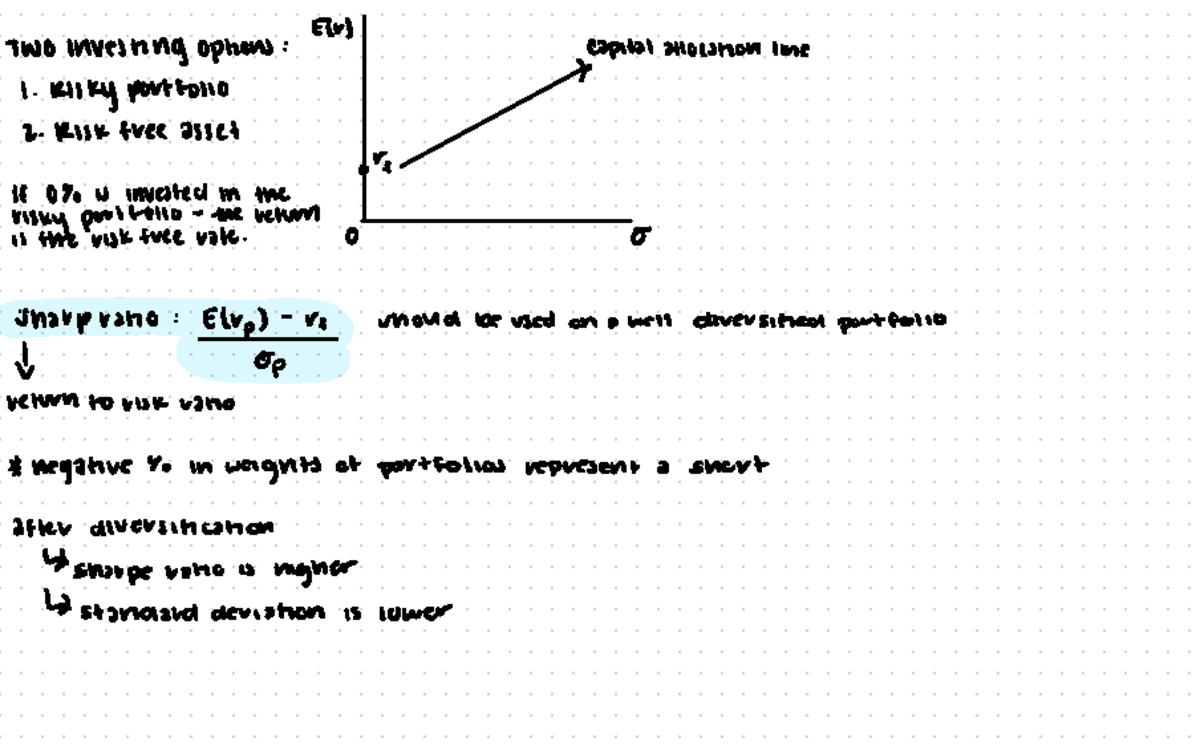 Two investing options:
1. Risky portfolio
2. Risk free asset
If 0% is invested in the
risky portfolio - the return
is the risk free rate.
E(r)
capital allocation line
rf
0
σ
Sharp ratio: E(rp) - rf
σp
should be used on a well diversified portfolio
↓
return to risk ratio
* negative % in weights of portfolios represent a short
after diversification
↳ sharpe ratio is higher
↳ standard deviation is lower